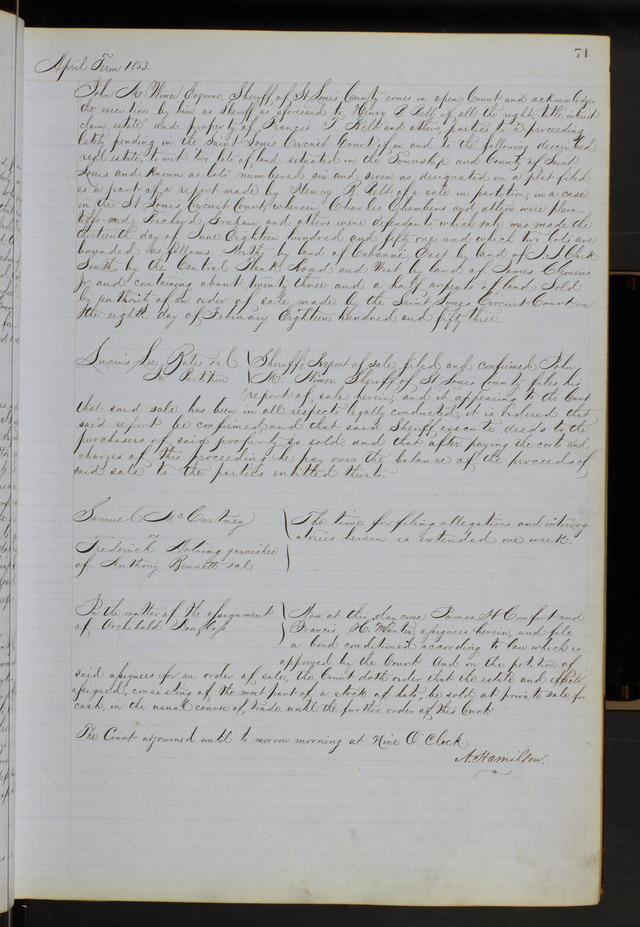 71
April Term 1853.
John M Wimer Esquire Sheriff of St Louis County comes in open Court and acknowledges
the execution by him as Sheriff as aforesaid to Henry B Belt of all the right, title, interest
claim, estate and property of Francis T Belt and others, parties to a proceeding
lately pending in the Saint Louis Circuit Court of in and to the following described
real estate, to wit two lots of land situated in the Township and County of Saint
Louis and known as lots numbered six and seven as designated on a plat filed
as a part of a report made by Henry B Belt of a sale in partition, in a case
in the St Louis Circuit Court, wherein Charles Chambers and others were plain-
tiffs and Richard Graham and others were defendants which sale was made the
thirteenth day of June Eighteen hundred and fifty one and which two lots are
bounded as follows: North by land of Cabanne East by land of Clark
South by the Central Plank Road and West by land of James Clemens
jr and containing about twenty three and a half arpents of land Sold
by authority of an order of sale made by the Saint Louis Circuit Court on
the eighth day of February Eighteen hundred and fifty three.
Lucius Lee Bates et al
In Partition
Sheriff's Report of sale filed and confirmed John
M. Wimer Sheriff of St Louis County files his
report of sale herein, and it appearing to the Court
that said sale has been in all respects legally conducted, it is ordered that
said report be confirmed, and that said Sheriff execute deeds to the
purchasers of said property so sold and that after paying the costs and
charges of this proceeding he pay over the balance of the proceeds of
said sale to the parties entitled thereto.
Samuel McCartney
vs
Frederick garnishee
of Anthony Bennett et al
The time for filing allegations and interrog-
atories herein is extended one week.
In the matter of the assignment
of Archibald Douglass
Now at this day come James H Comfort and
Francis H. assignees herein, and file
a bond conditioned according to law which is
approved by the Court And on the petition of
said assignees for an order of sale, the Court doth order that the estate and effects
assigned, consisting of the most part of a stock of hats, be sold at private sale for
cash, in the usual course of trade, until the further order of this Court
The Court adjourned until to morrow morning at Nine O'Clock
A. Hamilton.